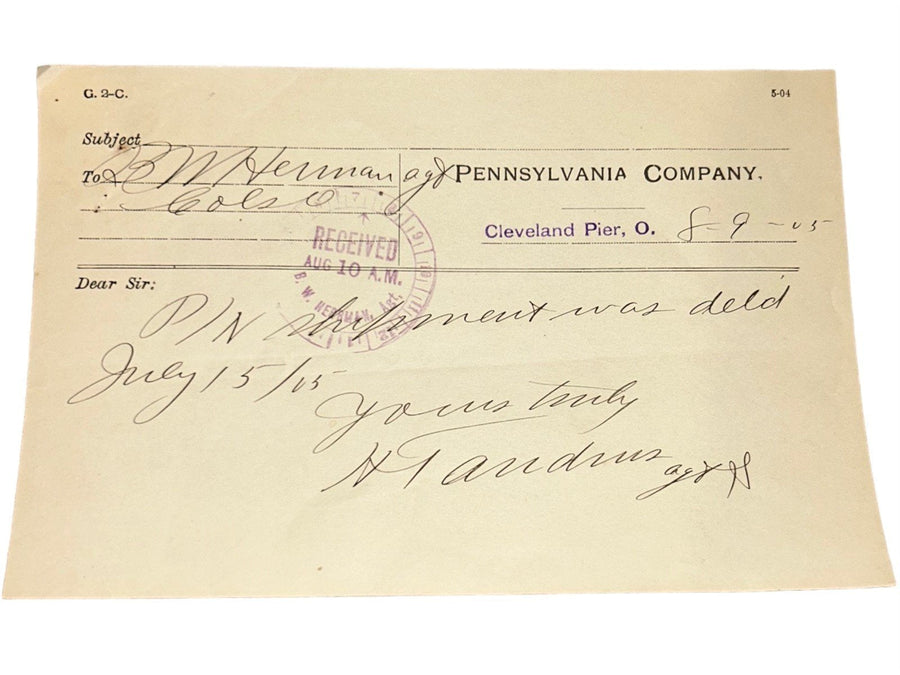 G. 2-C. 5-04
Subject
To B W Herman agt
Cols O
PENNSYLVANIA COMPANY.
Cleveland Pier, O. 8-9-05
RECEIVED
AUG 10 A.M.
B. W. HERMAN, Agt.
Dear Sir:
P/N shipment was deld
July 15/05
Yours truly
H T Andrus agt